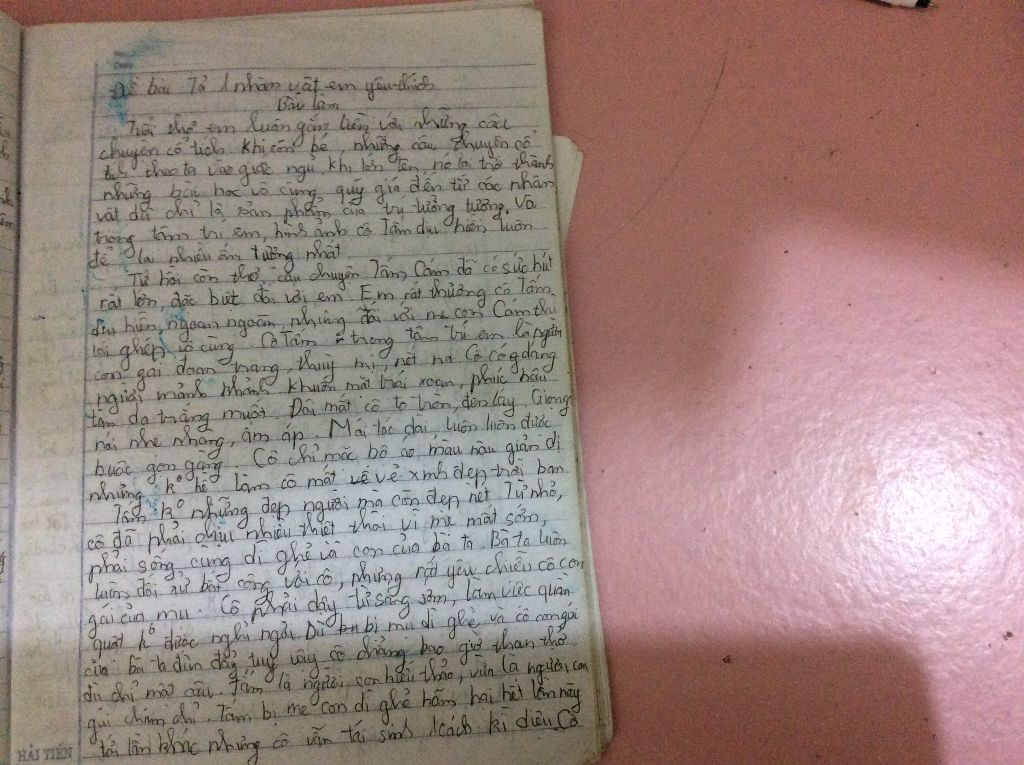 Đề bài Tả 1 nhân vật em yêu thích
Bài làm
Tuổi thơ em luôn gắn liền với những câu
chuyện cổ tích khi còn bé, những câu chuyện cổ
tích theo ta vào giấc ngủ, khi lớn lên, nó lại trở thành
những bài học vô cùng quý giá đến từ các nhân
vật dù chỉ là sản phẩm của trí tưởng tượng. Và
trong tâm trí em, hình ảnh cô Tấm dịu hiền luôn
để lại nhiều ấn tượng nhất.
Từ hồi còn thơ câu chuyện Tấm Cám đã có sức hút
rất lớn, đặc biệt đối với em. Em rất thương cô Tấm
dịu hiền, ngoan ngoãn, nhưng đối với mẹ con Cám thì
lại ghét vô cùng. Cô Tấm trong tâm trí em là người
con gái đoan trang, thuỳ mị, nết na. Cô có dáng
người mảnh khảnh khuôn mặt trái xoan, phúc hậu
làn da trắng muốt. Đôi mắt cô to tròn, đen láy. Giọng
nói nhẹ nhàng, ấm áp. Mái tóc dài luôn luôn được
buộc gọn gàng. Cô chỉ mặc bộ áo màu nâu giản dị
nhưng k° hề làm cô mất vẻ xinh đẹp trời ban.
Tấm k° những đẹp người mà còn đẹp nết. Từ nhỏ,
cô đã phải chịu nhiều thiệt thòi vì mẹ mất sớm,
phải sống cùng dì ghẻ và con của bà ta. Bà ta luôn
luôn đối xử bất công với cô, nhưng rất yêu chiều cô con
gái của mụ. Cô phải dậy từ sáng sớm, làm việc quần
quật k° được nghỉ ngơi. Dù bị mụ dì ghẻ và cô con gái
của bà ta đùn đẩy tuy vậy cô chẳng bao giờ than thở
dù chỉ một câu. Tấm là người con hiếu thảo, vừa là người con
gái chăm chỉ. Tấm bị mẹ con dì ghẻ hãm hại hết lần này
tới lần khác nhưng cô vẫn tái sinh 1 cách kì diệu. Cô
HẢI TIẾN